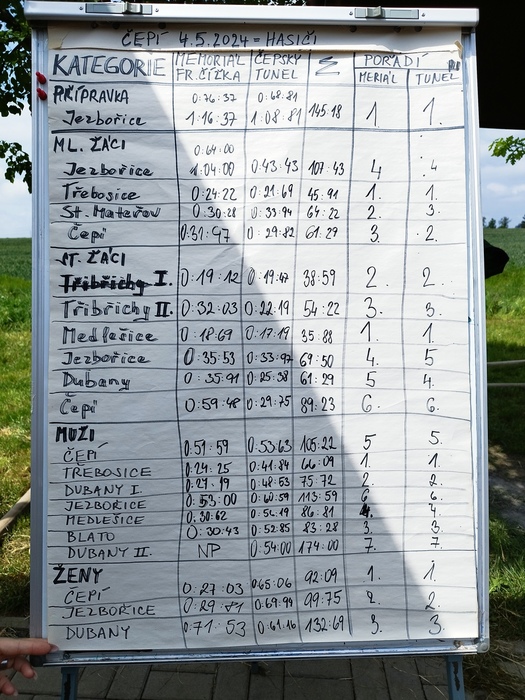 ČEPÍ 4.5.2024 = HASIČI
KATEGORIE MEMORIÁL FR.ČÍŽKA ČEPSKÝ TUNEL Σ POŘADÍ MERIÁL TUNEL
PŘÍPRAVKA 0:76:37 0:68:81
Jezbořice 1:16:37 1:08:81 145:18 1. 1.
ML. ŽÁCI 0:64:00
Jezbořice 1:04:00 0:43:43 107:43 4 4
Třebosice 0:24:22 0:21:69 45:91 1. 1.
St. Mateřov 0:30:28 0:33:94 64:22 2. 3.
Čepí 0:31:47 0:29:82 61:29 3. 2.
ST. ŽÁCI
Třibřichy I. 0:19:12 0:19:47 38:59 2. 2.
Třibřichy II. 0:32:03 0:22:19 54:22 3. 3.
Medlešice 0:18:69 0:17:19 35:88 1. 1.
Jezbořice 0:35:53 0:33:97 69:50 4. 5
Dubany 0:35:91 0:25:38 61:29 5 4.
Čepí 0:59:48 0:29:75 89:23 6. 6.
MUŽI
ČEPÍ 0:51:59 0:53:63 105:22 5 5.
TŘEBOSICE 0:24:25 0:41:84 66:09 1. 1.
DUBANY I. 0:27:19 0:48:53 75:72 2. 2.
JEZBOŘICE 0:53:00 0:60:59 113:59 6 6.
MEDLEŠICE 0:30:62 0:56:19 86:81 4. 4.
BLATO 0:30:43 0:52:85 83:28 3. 3.
DUBANY II. NP 0:54:00 174:00 7. 7.
ŽENY
ČEPÍ 0:27:03 0:65:06 92:09 1. 1.
JEZBOŘICE 0:29:81 0:69:94 99:75 2. 2.
DUBANY 0:71:53 0:61:16 132:69 3. 3.